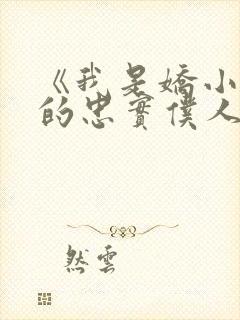 《我是嬌小
的忠實僕人
然雲